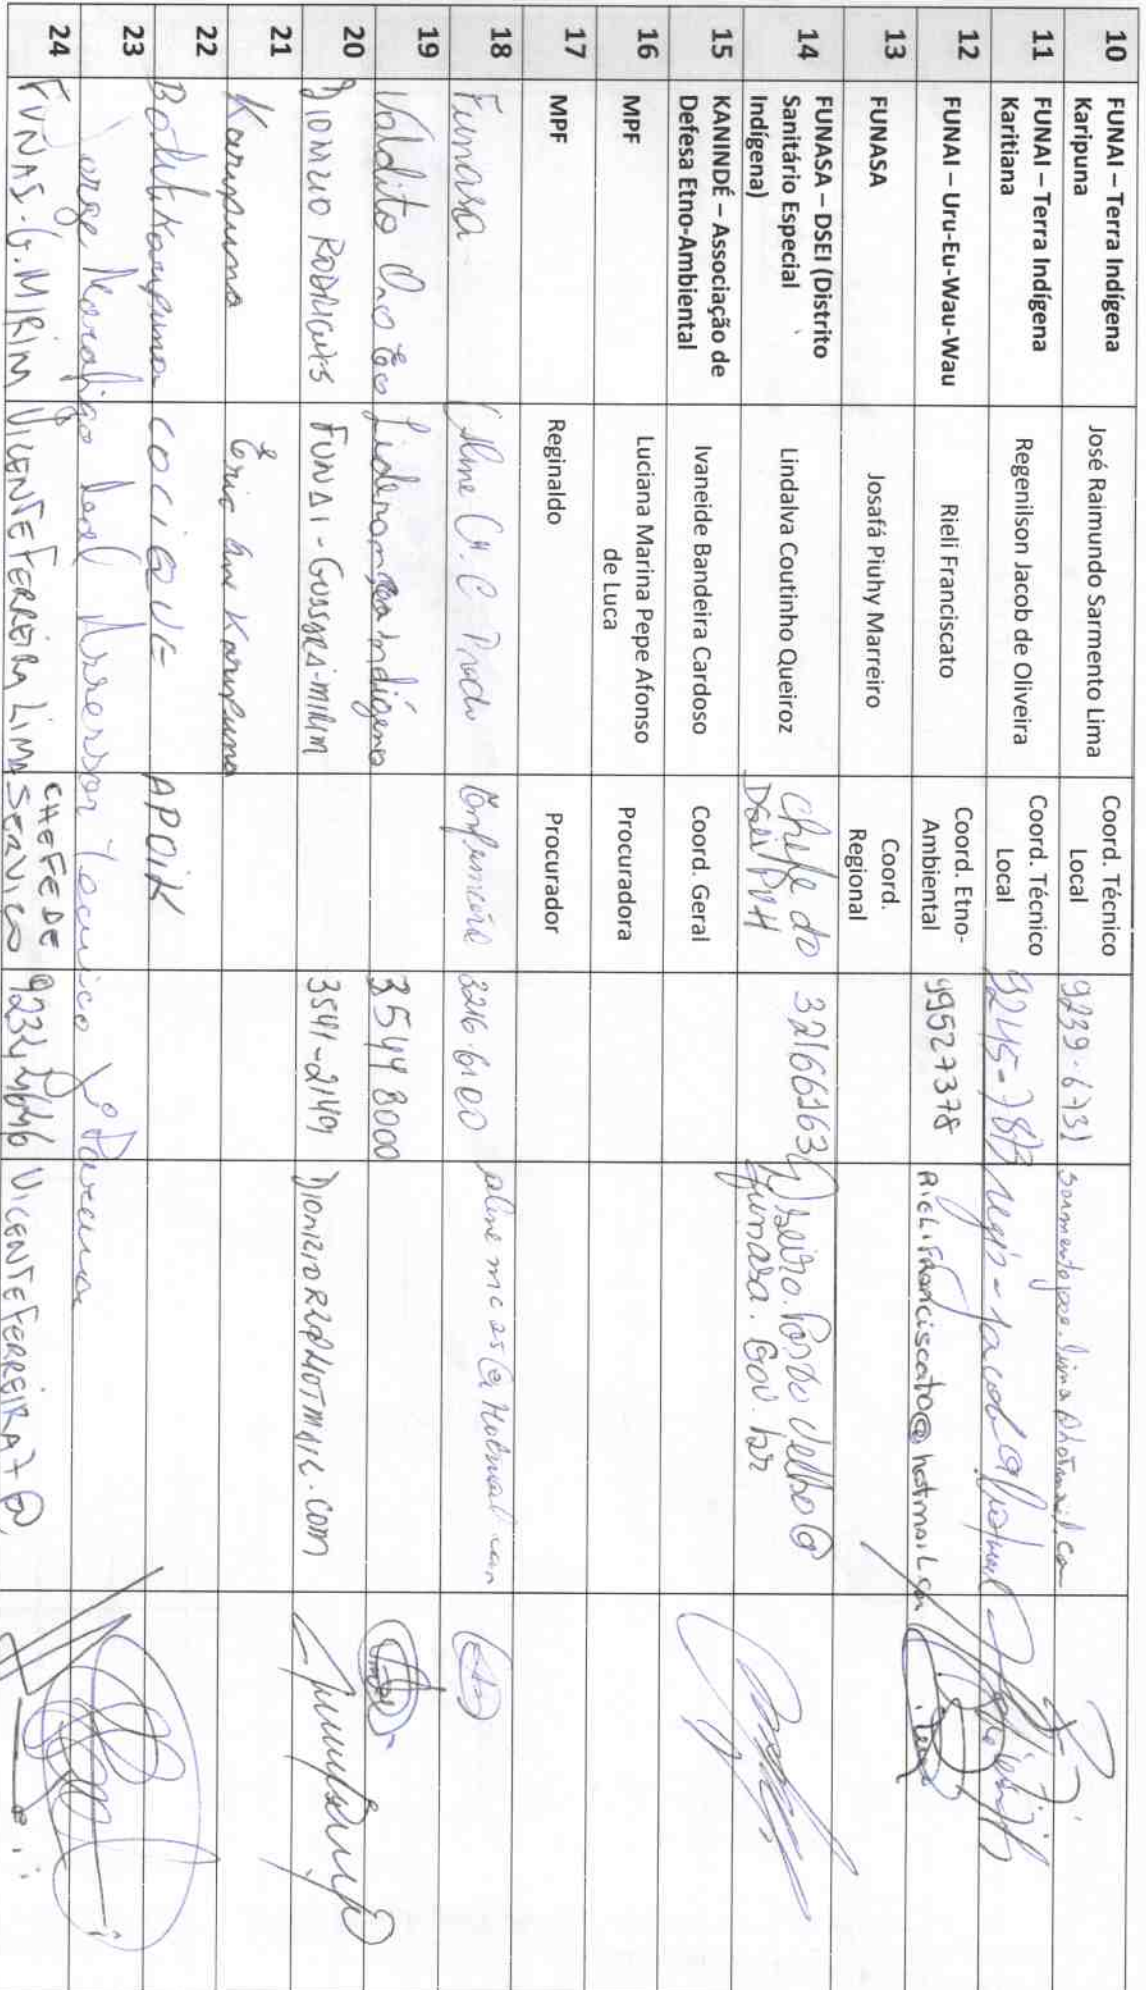 10 FUNAI – Terra Indígena Karipuna José Raimundo Sarmento Lima Coord. Técnico Local 9239-6731
11 FUNAI – Terra Indígena Karitiana Regenilson Jacob de Oliveira Coord. Técnico Local
12 FUNAI – Uru-Eu-Wau-Wau Rieli Franciscato Coord. Etno-Ambiental 99527378 RIELI.FRANCISCATO@hotmail.com
13 FUNASA Josafá Piuhy Marreiro Coord. Regional
14 FUNASA – DSEI (Distrito Sanitário Especial Indígena) Lindalva Coutinho Queiroz Chefe do Dsei/PVH 32166163
15 KANINDÉ – Associação de Defesa Etno-Ambiental Ivaneide Bandeira Cardoso Coord. Geral
16 MPF Luciana Marina Pepe Afonso de Luca Procuradora
17 MPF Reginaldo Procurador
18 Funasa Aline M. C. Prado Enfermeira 3216 6100
19 Valdito Oro Eo Liderança Indígena 3544 8000
20 DIONIZIO RODRIGUES FUNAI - GUAJARÁ-MIRIM 3541-2149
21 Karipuna Eric Karipuna
22 Karipuna CACIQUE APOIK
23 Jorge Leal Assessor Técnico
24 G. MIRIM VICENTE FERREIRA LIMA CHEFE DE SERVIÇO